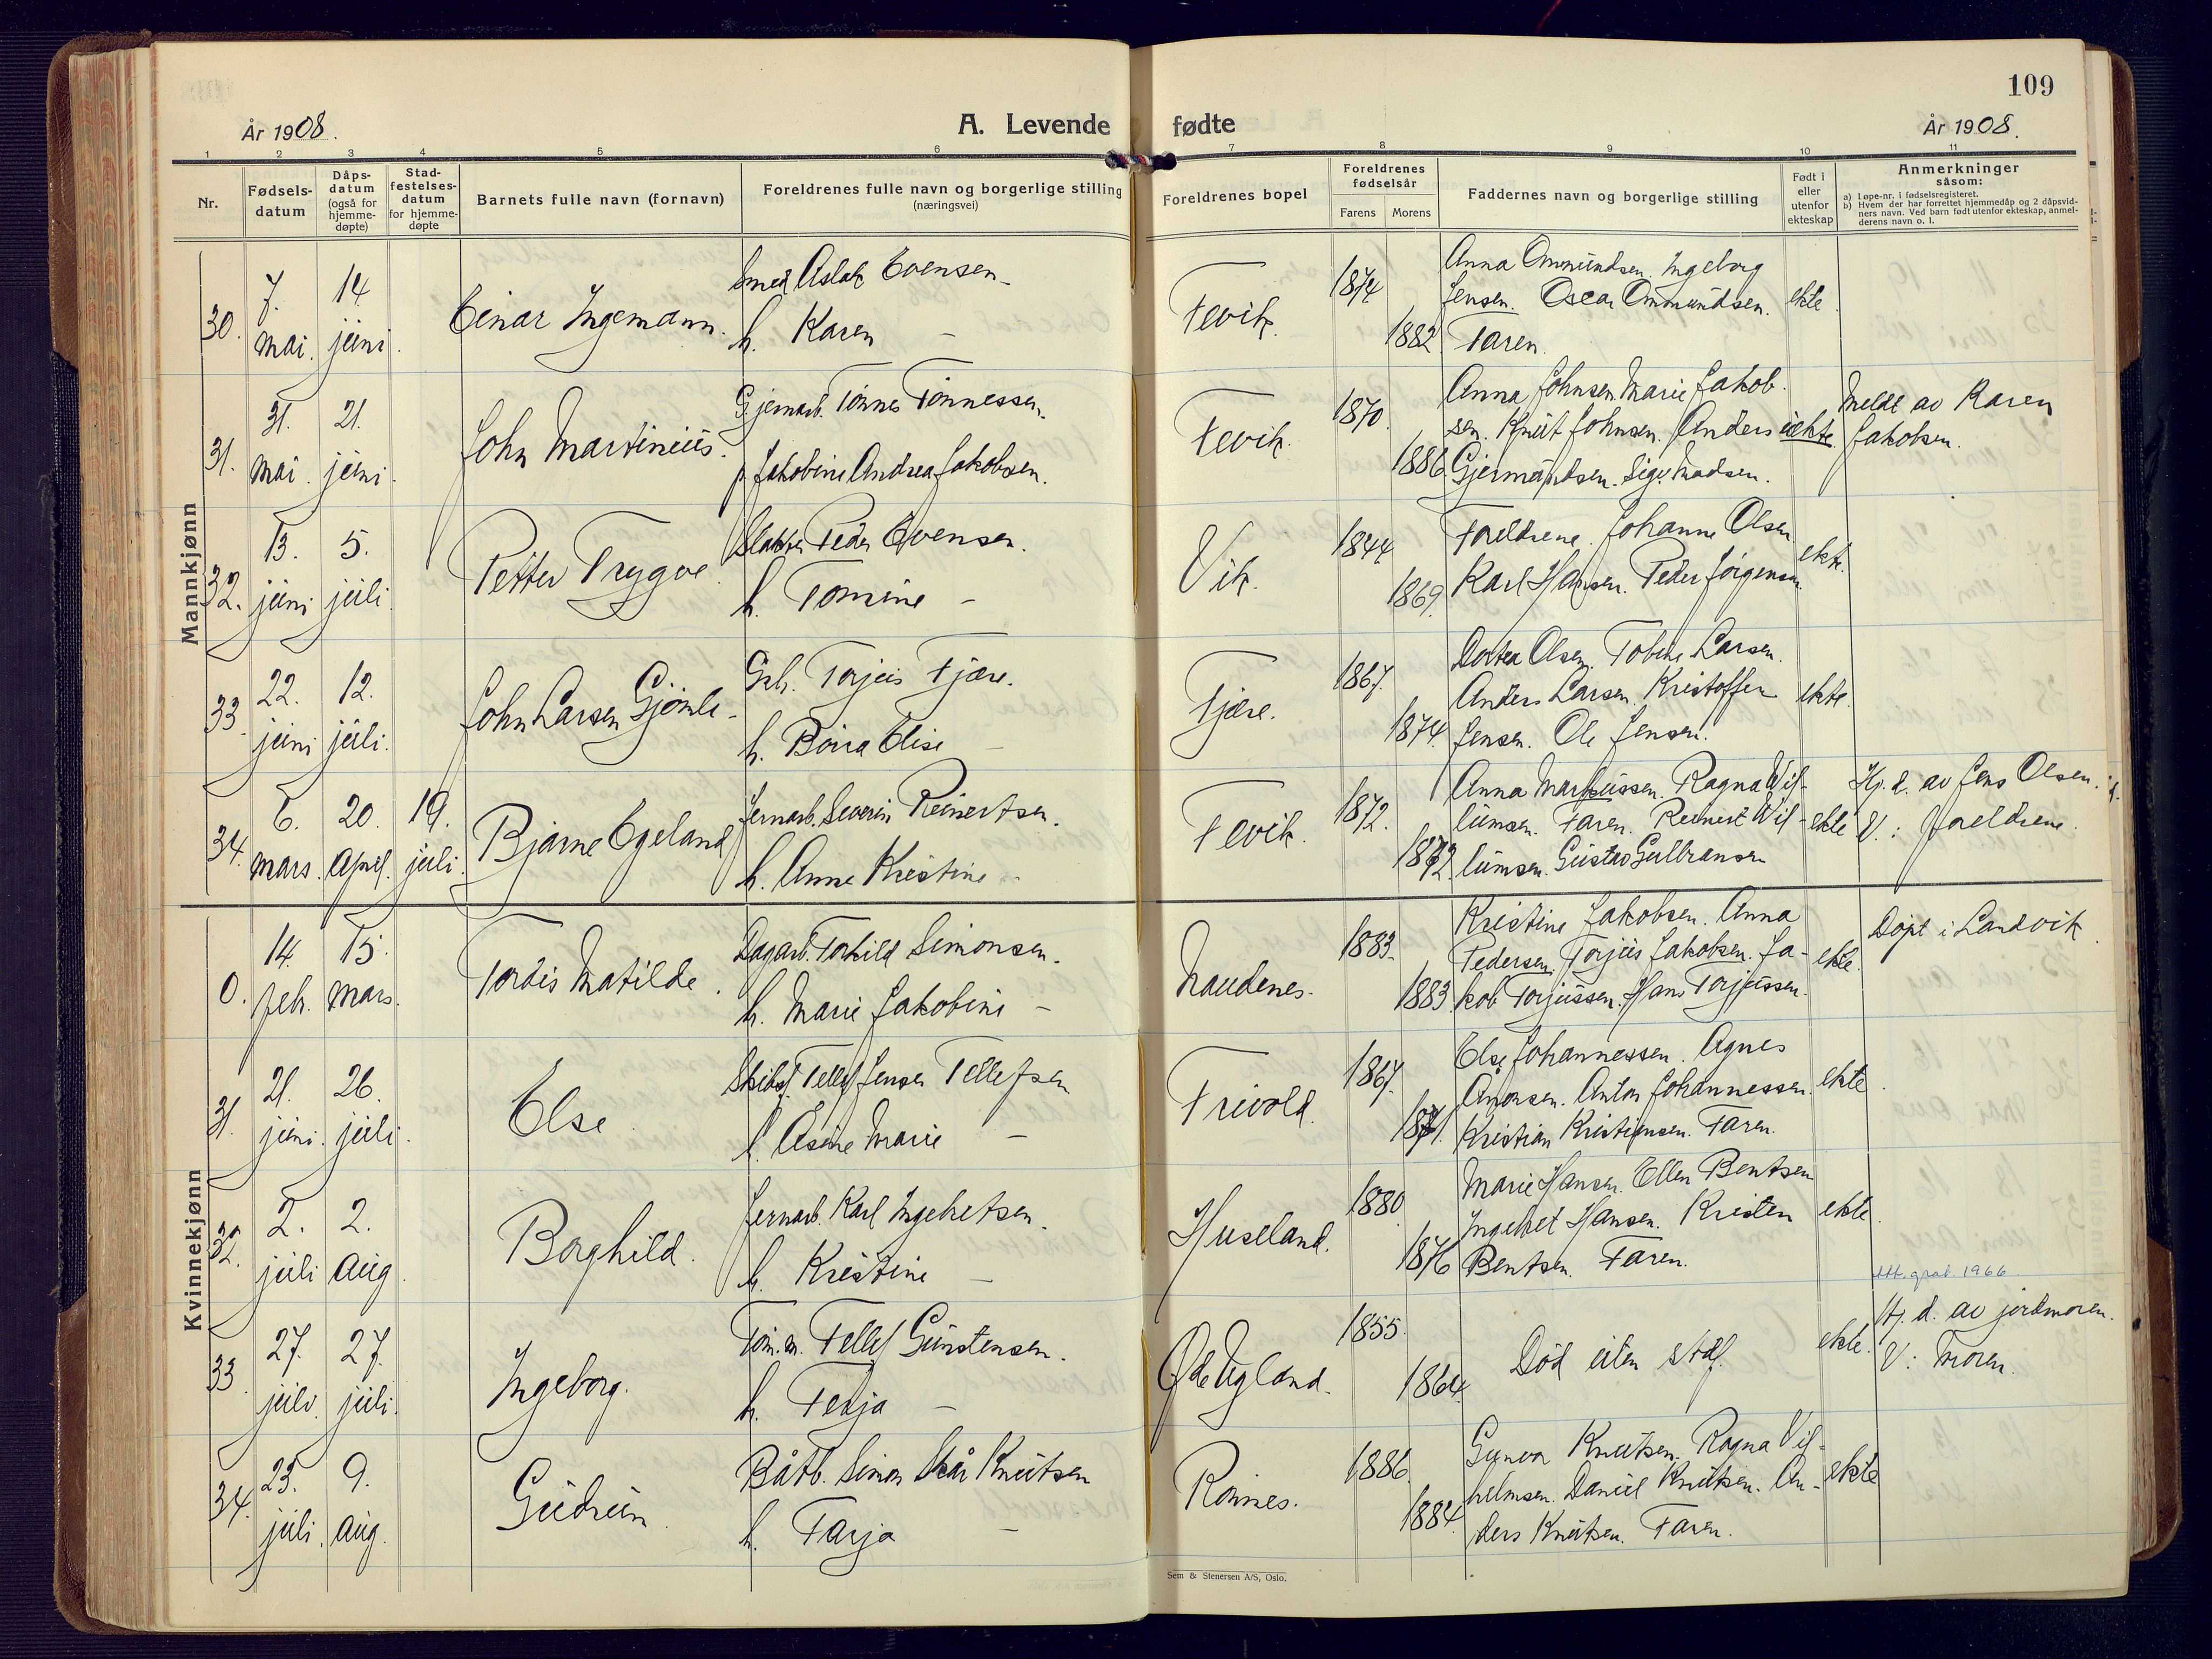 109
År 1908.
A. Levende fødte
År 1908.
1 2 3 4 5 6 7 8 9 10 11
Nr.
Fødsels-
datum
Dåps-
datum
(også for
hjemme-
døpte)
Stad-
festelses-
datum
for hjemme-
døpte
Barnets fulle navn (fornavn)
Foreldrenes fulle navn og borgerlige stilling
(næringsvei)
Foreldrenes bopel
Foreldrenes
fødselsår
Farens Morens
Faddernes navn og borgerlige stilling
Født i
eller
utenfor
ekteskap
Anmerkninger
såsom:
a) Løpe-nr. i fødselsregisteret.
b) Hvem der har forrettet hjemmedåp og 2 dåpsvid-
ners navn. Ved barn født utenfor ekteskap, anmel-
derens navn o. l.
Mannkjønn
30.
7.
mai.
14.
juni.
Einar Ingemann.
Smed Aslak Evensen
h. Karen –
Fevik.
1874
1882
Anna Ommundsen. Ingeborg
Jensen. Oscar Ommundsen.
Faren.
ekte
31.
31.
mai.
21.
juni.
John Martinius.
Gjernarb. Tønnes Tønnessen.
p. Jakobine Andrea Jakobsen.
Fevik.
1870.
1886.
Anna Johnsen Marie Jakob-
sen. Knut Johnsen. Anders
Gjermundsen. Sig. Madsen.
uekte
Meldt av Karen
Jakobsen.
32.
13.
juni
5.
juli
Petter Trygve.
Peder Evensen.
h. Tomine –
Vik.
1844
1869.
Foreldrene. Johanne Olsen
Karl Hansen. Peder Jørgensen.
ekte.
33.
22.
juni
12.
juli.
John Larsen Gjømle
Grb. Torjus Fjære.
h. Borra Elise –
Fjære.
1867.
1874.
Dortea Olsen. Tobine Larsen.
Anders Larsen. Kristoffer
Jensen. Ole Jensen.
ekte.
34.
6.
mars.
20.
April.
19.
juli.
Bjarne Egeland
Jernarb. Severin Reinertsen.
h. Anne Kristine –
Fevik.
1872.
1872.
Anna Markussen. Ragna Wil-
lumsen. Faren. Reinert Wil-
lumsen. Gustav Gulbransen
ekte
Hj. d. av Jens Olsen.
V.: foreldrene.
Kvinnekjønn
0.
14.
febr.
15.
mars.
Tordis Matilde.
Dagarb. Torkild Simonsen.
h. Marie Jakobine –
Naudenes.
1883.
1883.
Kristine Jakobsen. Anna
Pedersen. Torjus Jakobsen. Ja-
kob Torjussen. Hans Torjussen.
ekte.
Døpt i Landvik.
31.
21.
juni.
26.
juli.
Else.
Skibsf. Tellef Jensen Tellefsen
h. Åsine Marie –
Frivold.
1867.
1871.
Else Johannessen. Agnes
Anonsen. Anton Johannessen.
Kristian Kristiansen. Faren.
ekte.
32.
2.
juli
2.
Aug.
Borghild.
Jernarb. Karl Ingebretsen.
h. Kristine –
Huseland.
1880.
1876
Marie Hansen. Ellen Bentsen
Ingebret Hansen. Kristen
Bentsen. Faren.
ekte.
33.
27.
juli.
27.
juli.
Ingeborg.
Tøm.m. Tellef Gunstensen.
h. Terja –
Øde Ugland.
1855.
1864.
Død uten stdf.
ekte.
Att. grat. 1966.
Hj. d. av jordmoren.
V: Moren.
34.
23.
juli.
9.
Aug.
Gudrun
Båtb. Simon Skår Knutsen
h. Tarja –
Rønnes.
1886.
1884.
Gunvor Knutsen. Ragna Vil-
helmsen. Daniel Knutsen. An-
ders Knutsen. Faren.
ekte
Sem & Stenersen A/S, Oslo.